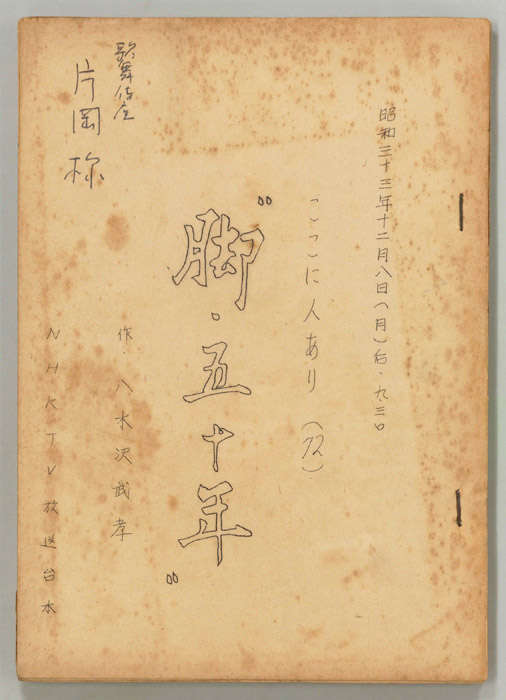 昭和三十三年十二月八日(月)后・九、三〇
ここに人あり(72)
"脚・五十年"
作・八木沢武孝
NHKTV放送台本
歌舞伎座
片岡様